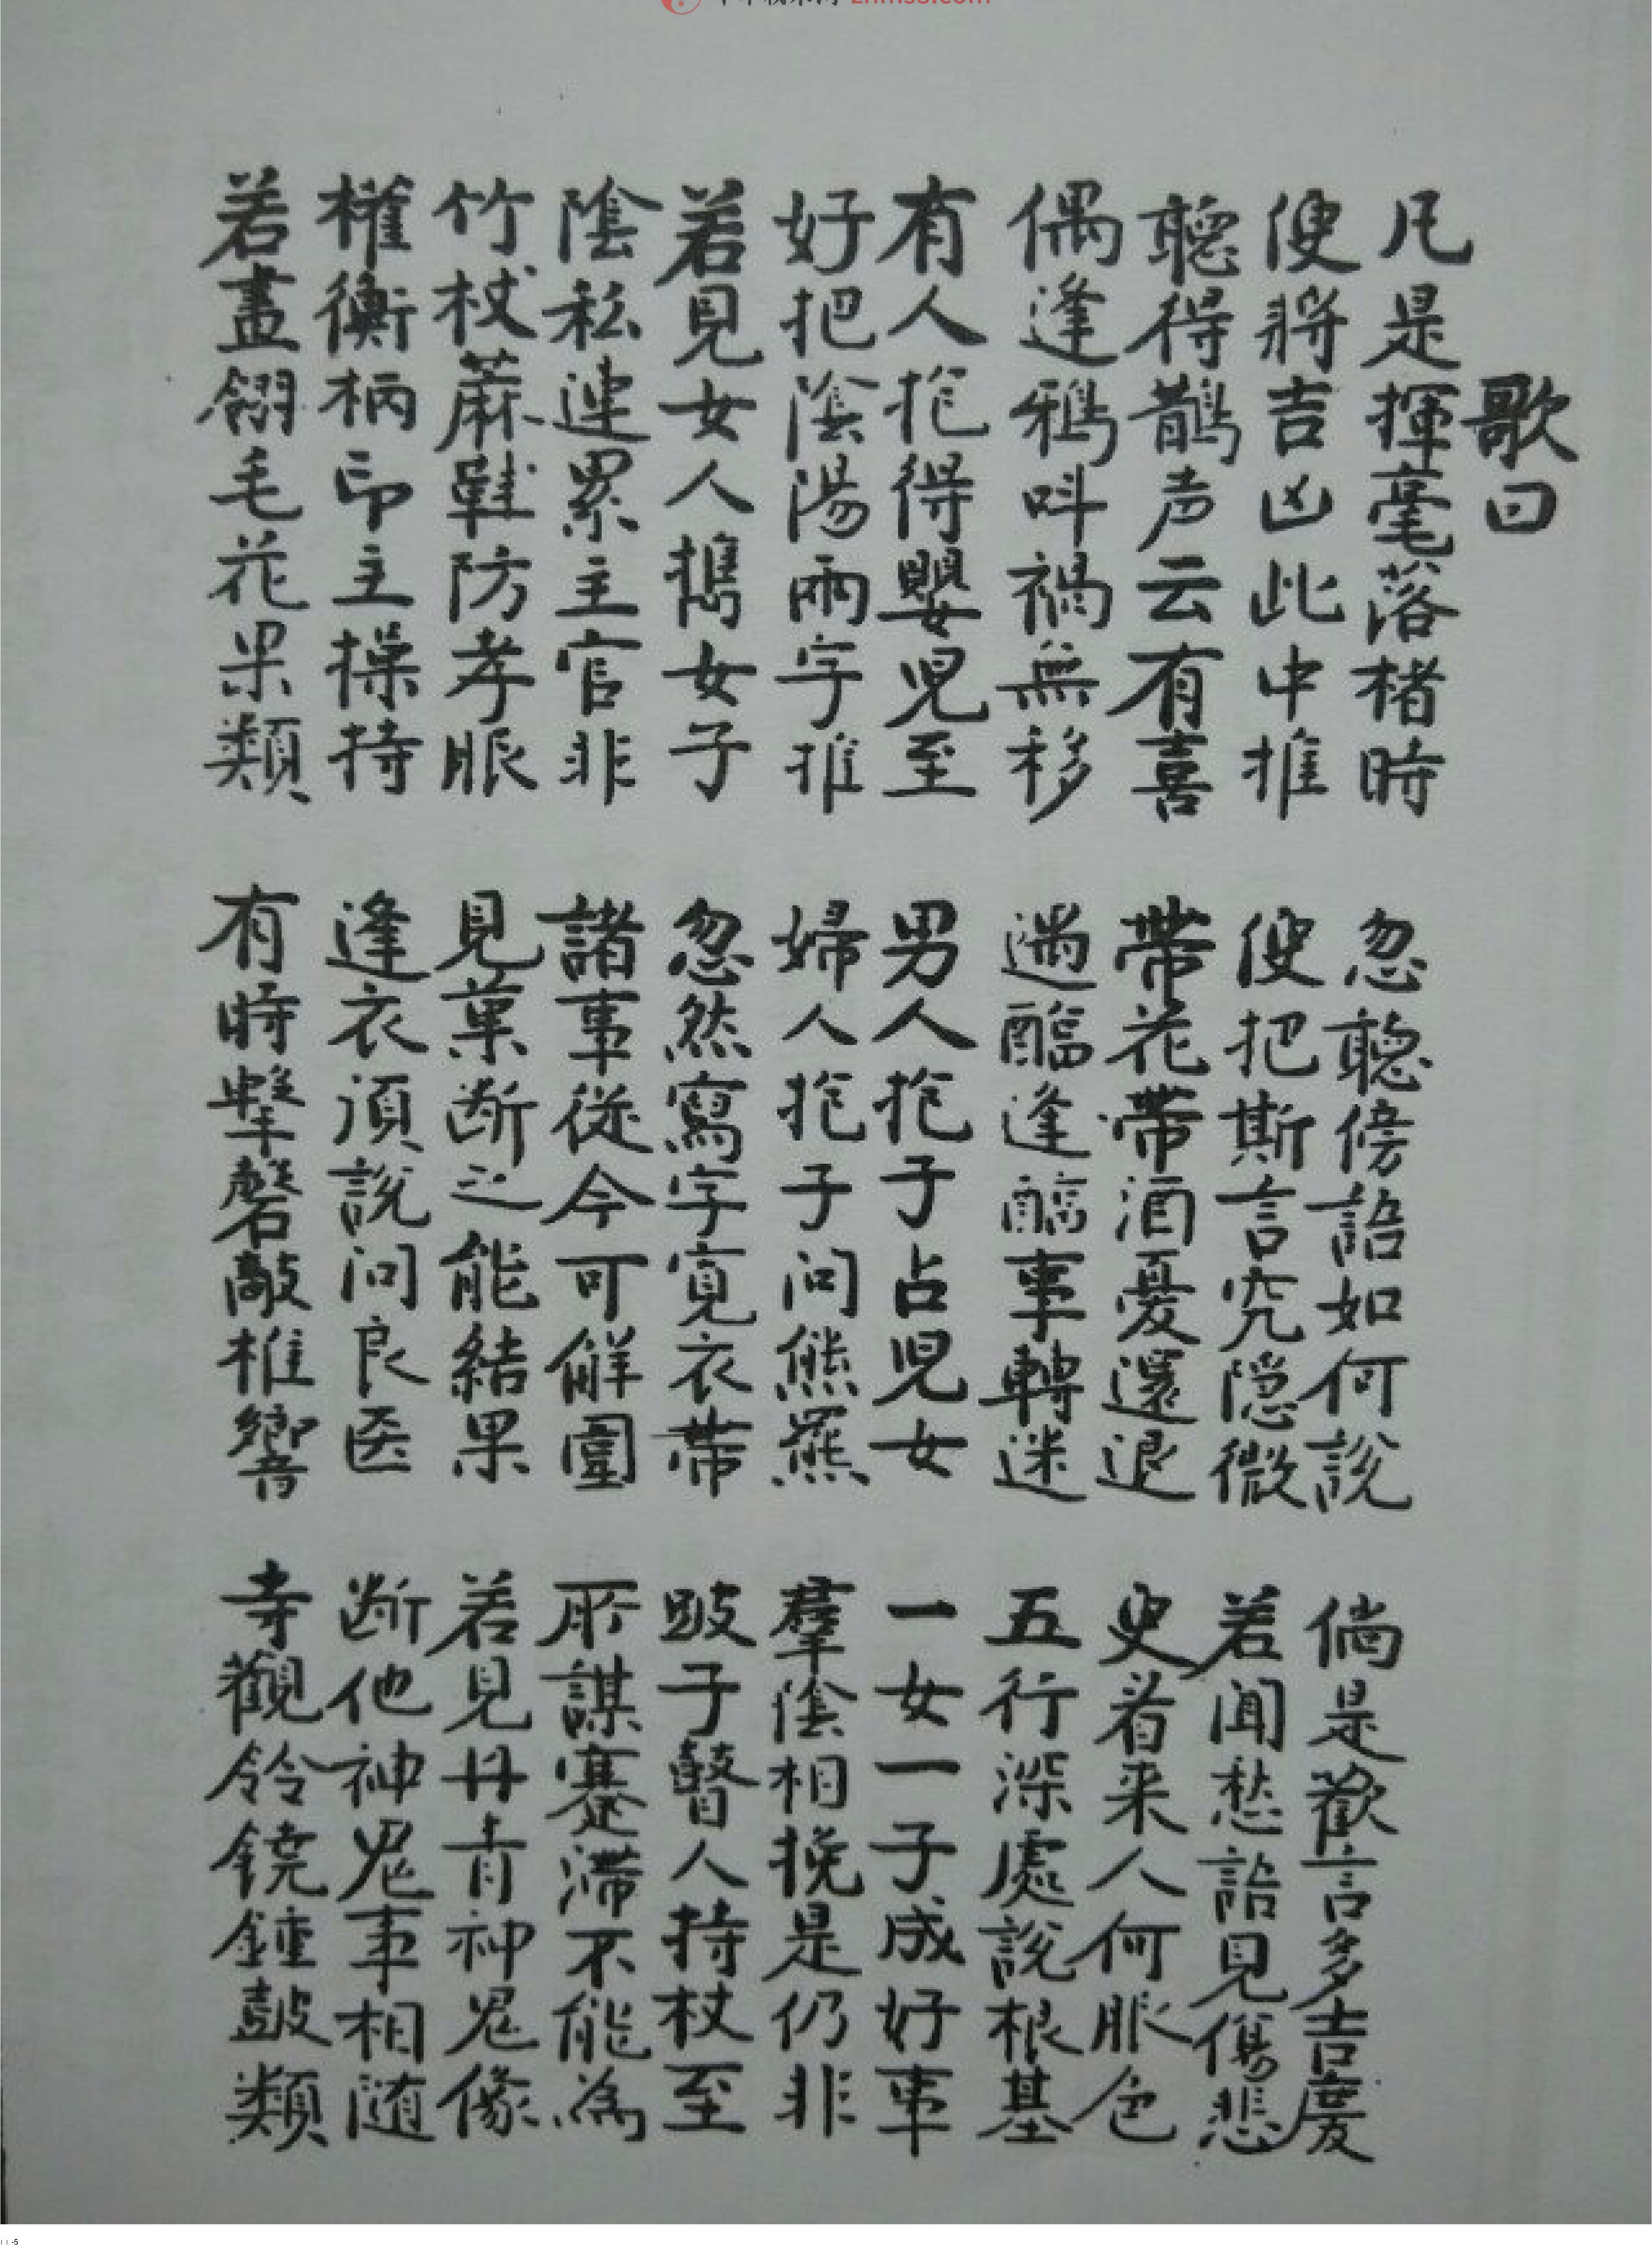 歌曰
凡是揮毫落楮時
便將吉凶此中推
忽聽傍語如何說
便把斯言究隱微
倘是歡言多吉慶
若聞愁語見傷悲
聽得鵲声云有喜
偶逢鴉叫禍無移
帶花帶酒憂還退
遇逢事轉迷
更看来人何服色
五行深處說根基
有人抱得嬰兒至
好把陰陽兩字推
男人抱子占兒女
婦人抱子问熊羆
一女一子成好事
羣陰相挽是仍非
若見女人携女子
陰私連累主官非
忽然寫字寬衣帶
諸事從今可解圍
跛子瞽人持杖至
所謀蹇滯不能為
竹杖蔴鞋防孝服
權衡柄印主操持
見菓断之能結果
逢衣須說问良医
若見丹青神鬼像
断他神鬼事相随
若畫翎毛花果類
有時擊磬敲椎響
寺觀鈴鐃鍾鼓類